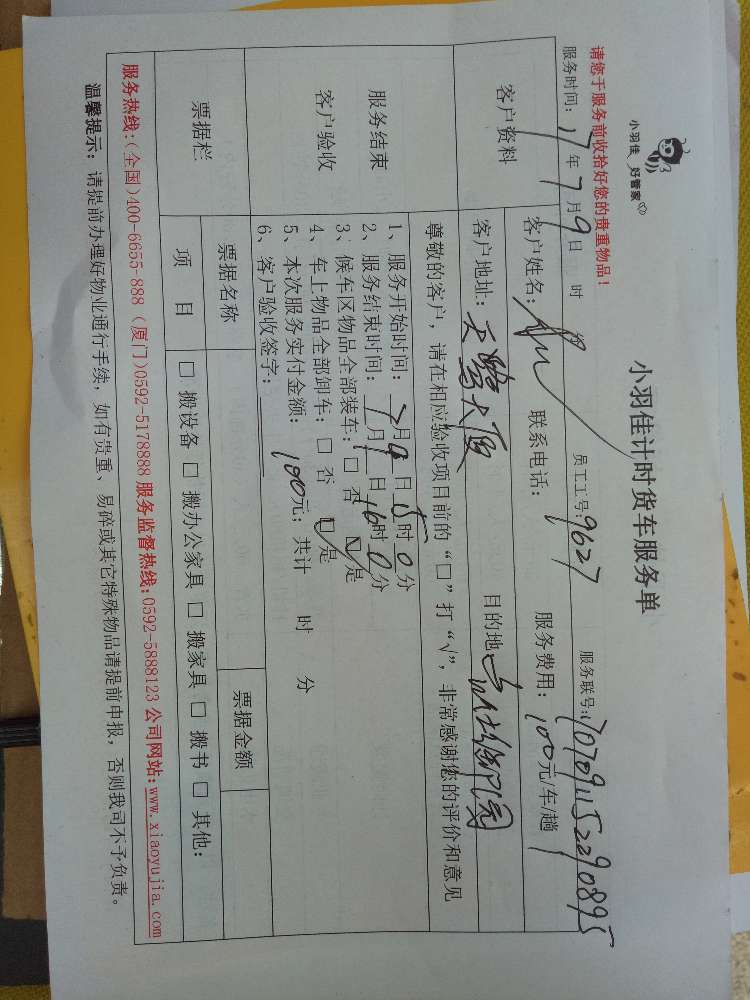 小羽佳 好管家
小羽佳计时货车服务单
请您于服务前收拾好您的贵重物品!
服务时间: 17年7月9日 时 分 员工工号: 9627 服务联号:
客户资料
客户姓名: 联系电话: 服务费用: 100元/车/趟
客户地址: 天鹭大厦 目的地:
服务结束
客户验收
尊敬的客户, 请在相应验收项目前的“□”打“√”, 非常感谢您的评价和意见
1、服务开始时间: 7月9日15时0分
2、服务结束时间: 月 日16时0分
3、候车区物品全部装车: □ 否 ☑是
4、车上物品全部卸车: □ 否 ☑是
5、本次服务实付金额: 100元; 共计 时 分
6、客户验收签字:
票据栏
票据名称 票据金额
项 目 □ 搬设备 □ 搬办公家具 □ 搬家具 □ 搬书 □ 其他:
服务热线:(全国)400-6655-888 (厦门)0592-5178888 服务监督热线:0592-5888123 公司网站:www.xiaoyujia.com
温馨提示: 请提前办理好物业通行手续, 如有贵重、易碎或其它特殊物品请提前申报, 否则我司不予负责。